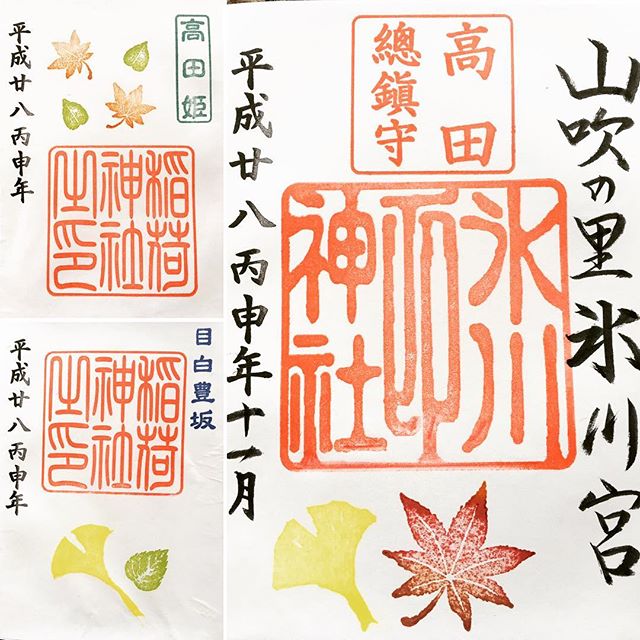 高田姫
稲荷
神社
之印
平成廿八丙申年
目白豊坂
稲荷
神社
之印
平成廿八丙申年
山吹の里氷川宮
高田
總鎮守
氷川
神社
平成廿八丙申年十一月